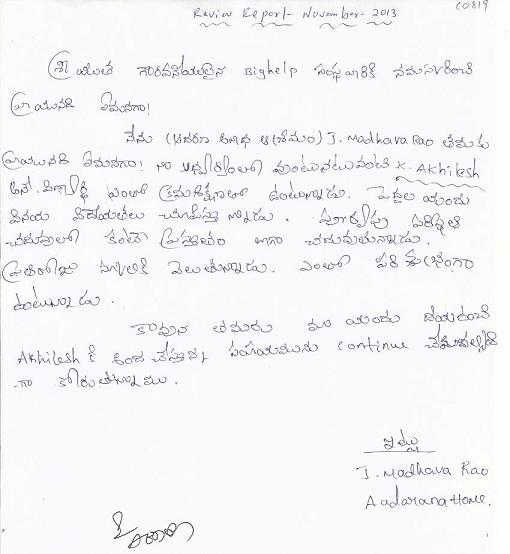 C0819
Review Report - November - 2013
శ్రీయుత గౌరవనీయులైన Bighelp సంస్థ వారికి నమస్కరించి
వ్రాయునది ఏమనగా!
నేను (ఆదరణ అనాధ ఆశ్రమం) J. Madhava Rao తమకు
వ్రాయునది ఏమనగా! మా ఆధ్వర్యంలో వుంటునటువంటి K. Akhilesh
అనే విద్యార్థి ఎంతో క్రమశిక్షణతో ఉంటున్నాడు. పెద్దల యందు
వినయ విధేయతలు చూపిస్తున్నాడు. పూర్వపు పరిస్థితి
చదువులో కంటే ప్రస్తుతం బాగా చదువుతున్నాడు.
ప్రతిరోజు స్కూలుకి వెలుతున్నాడు. ఎంతో పరిశుభ్రంగా
ఉంటున్నాడు.
కావున తమరు మా యందు దయవుంచి
Akhilesh కి అంద చేస్తున్న సహాయమును continue చేయవలసింది
గా కోరుతున్నాము.
ఇట్లు
J. Madhava Rao
Aadarana Home.